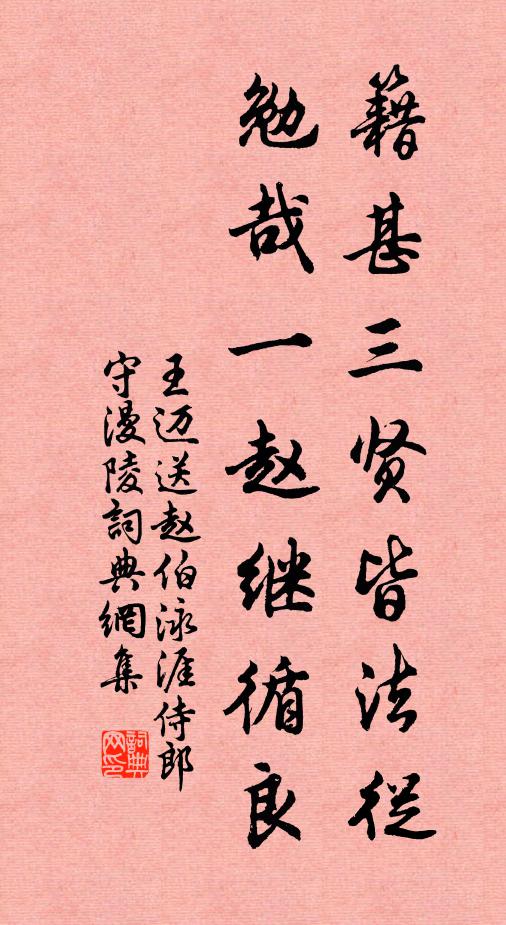 籍甚三贤皆法從
勉哉一赵继循良
王迈送赵伯泳涯侍郎
守漫陵詞典網集
詞典网印